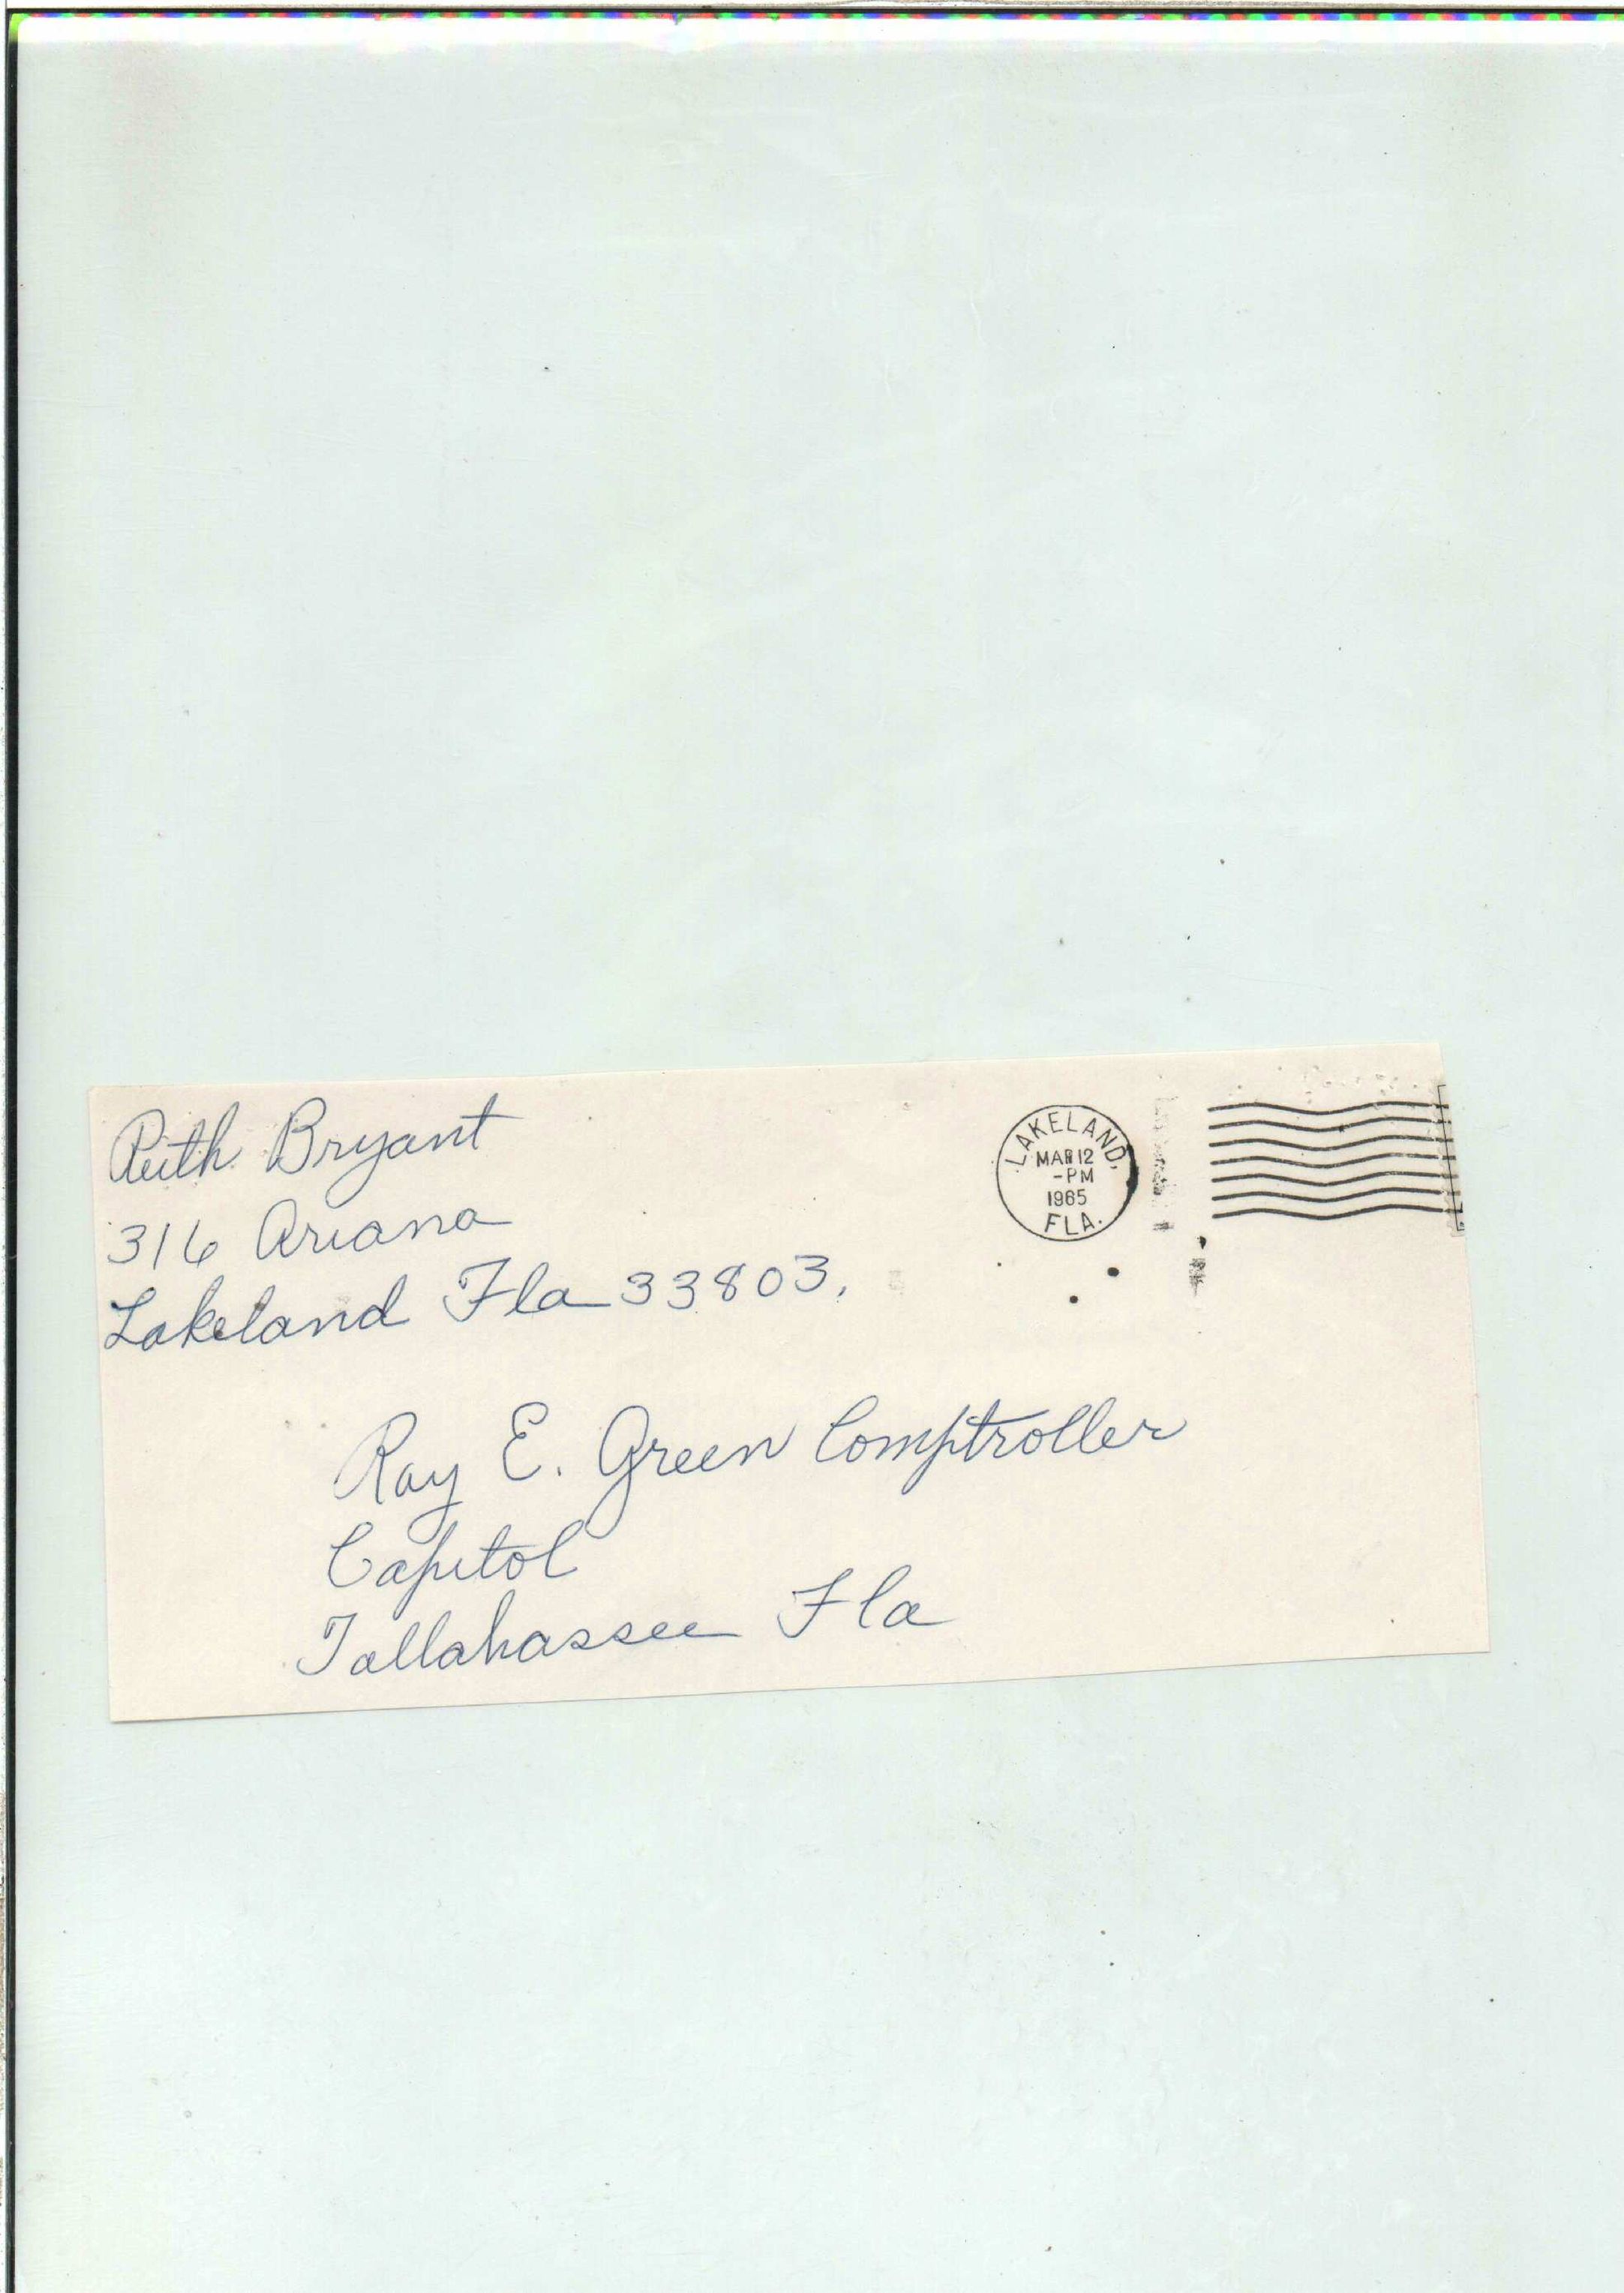 Ruth Bryant
316 Ariana
Lakeland Fla 33803,
LAKELAND,
MAR 12
-PM
1965
FLA.
Ray E. Green Comptroller
Capitol
Tallahassee Fla